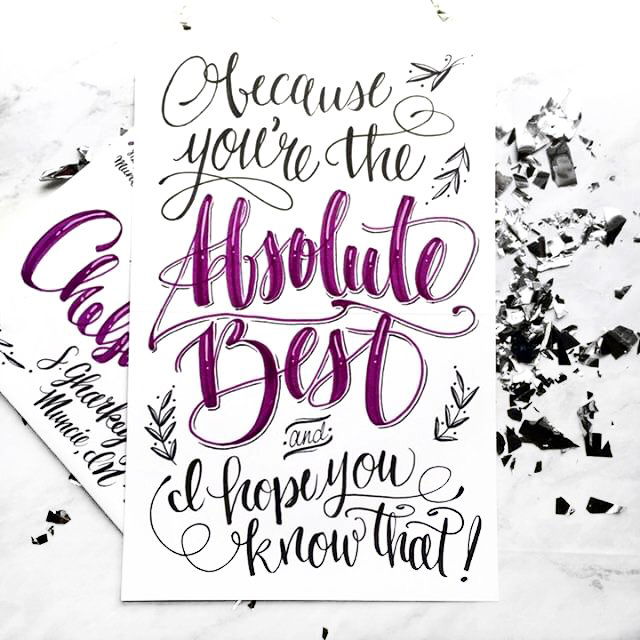 because
you're the
Absolute
Best
and
I hope you
know that!
Muncie, IN